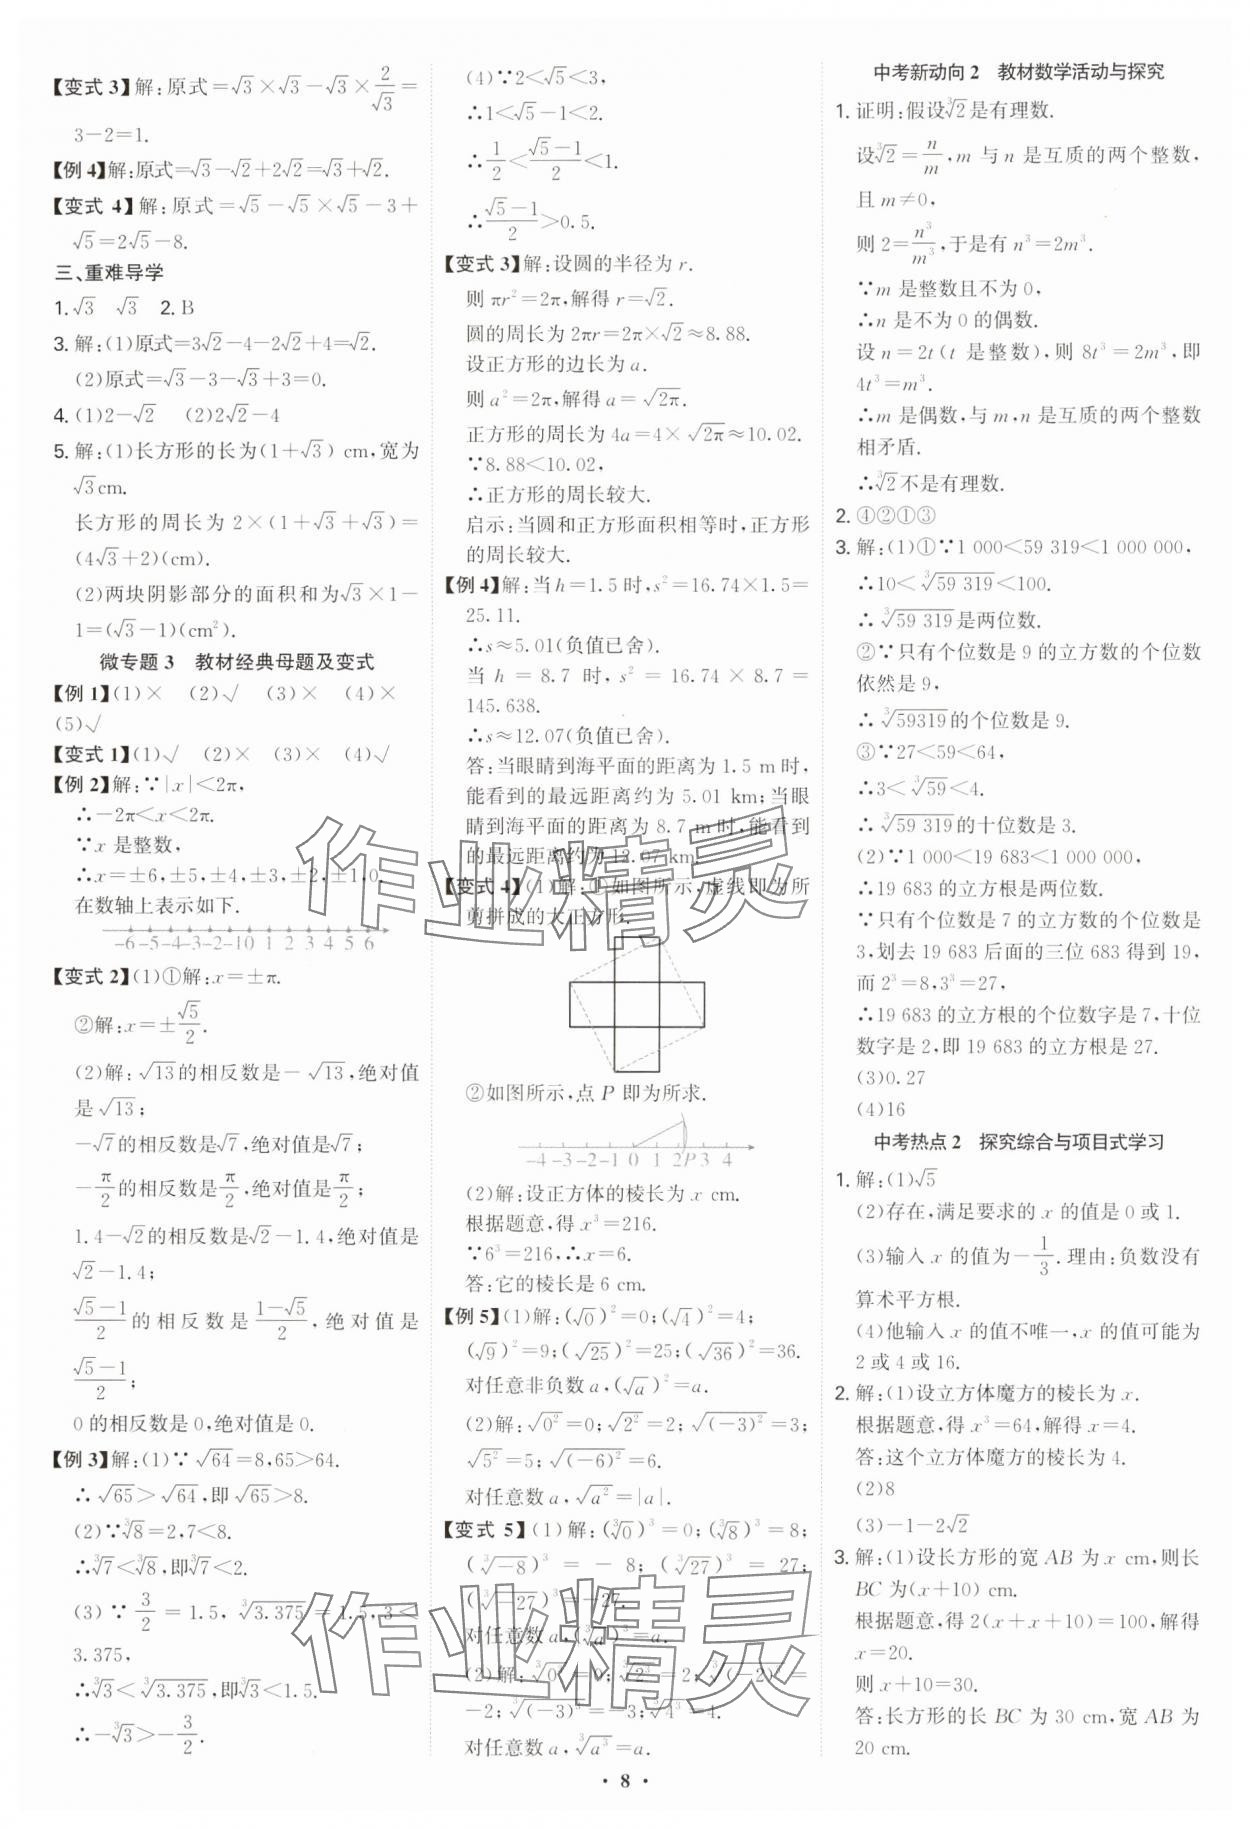 【变式 3】解:原式=√3×√3-√3×2/√3=
3-2=1.
【例 4】解:原式=√3-√2+2√2=√3+√2.
【变式 4】解:原式=√5-√5×√5-3+
√5=2√5-8.
三、重难导学
1.√3 √3 2.B
3.解:(1)原式=3√2-4-2√2+4=√2.
(2)原式=√3-3-√3+3=0.
4.(1)2-√2 (2)2√2-4
5.解:(1)长方形的长为(1+√3) cm,宽为
√3 cm.
长方形的周长为 2×(1+√3+√3)=
(4√3+2)(cm).
(2)两块阴影部分的面积和为√3×1-
1=(√3-1)(cm²).
微专题 3 教材经典母题及变式
【例 1】(1)× (2)√ (3)× (4)×
(5)√
【变式 1】(1)√ (2)× (3)× (4)√
【例 2】解:∵|x|<2π,
∴-2π<x<2π.
∵x 是整数,
∴x=±6,±5,±4,±3,±2,±1,0.
在数轴上表示如下.
-6-5-4-3-2-10 1 2 3 4 5 6
【变式 2】(1)①解:x=±π.
②解:x=±√5/2.
(2)解:√13的相反数是-√13,绝对值
是√13;
-√7的相反数是√7,绝对值是√7;
-π/2的相反数是π/2,绝对值是π/2;
1.4-√2的相反数是√2-1.4,绝对值是
√2-1.4;
(√5-1)/2的相反数是(1-√5)/2,绝对值是
(√5-1)/2;
0 的相反数是 0,绝对值是 0.
【例 3】解:(1)∵√64=8,65>64.
∴√65>√64,即√65>8.
(2)∵∛8=2,7<8.
∴∛7<∛8,即∛7<2.
(3)∵3/2=1.5,∛3.375=1.5,3<
3.375,
∴∛3<∛3.375,即∛3<1.5.
∴-∛3>-3/2.
(4)∵2<√5<3,
∴1<√5-1<2.
∴1/2<(√5-1)/2<1.
∴(√5-1)/2>0.5.
【变式 3】解:设圆的半径为 r.
则 πr²=2π,解得 r=√2.
圆的周长为 2πr=2π×√2≈8.88.
设正方形的边长为 a.
则 a²=2π,解得 a=√2π.
正方形的周长为 4a=4×√2π≈10.02.
∵8.88<10.02,
∴正方形的周长较大.
启示:当圆和正方形面积相等时,正方形
的周长较大.
【例 4】解:当 h=1.5 时,s²=16.74×1.5=
25.11.
∴s≈5.01(负值已舍).
当 h=8.7 时,s²=16.74×8.7=
145.638.
∴s≈12.07(负值已舍).
答:当眼睛到海平面的距离为 1.5 m时,
能看到的最远距离约为 5.01 km;当眼
睛到海平面的距离为 8.7 m时,能看到
的最远距离约为 12.07 km.
【变式 4】(1)解:①如图所示,虚线即为所
剪拼成的大正方形.
②如图所示,点 P 即为所求.
-4-3-2-1 0 1 2P3 4
(2)解:设正方体的棱长为 x cm.
根据题意,得 x³=216.
∵6³=216,∴x=6.
答:它的棱长是 6 cm.
【例 5】(1)解:(√0)²=0;(√4)²=4;
(√9)²=9;(√25)²=25;(√36)²=36.
对任意非负数 a,(√a)²=a.
(2)解:√0²=0;√2²=2;√(-3)²=3;
√5²=5;√(-6)²=6.
对任意数 a,√a²=|a|.
【变式 5】(1)解:(∛0)³=0;(∛8)³=8;
(∛-8)³=-8;(∛27)³=27;
(∛-27)³=-27.
对任意数 a,(∛a)³=a.
(2)解:∛0³=0;∛2³=2;∛(-2)³=
-2;∛(-3)³=-3;∛4³=4.
对任意数 a,∛a³=a.
中考新动向 2 教材数学活动与探究
1.证明:假设∛2是有理数.
设∛2=n/m,m 与 n 是互质的两个整数,
且 m≠0,
则 2=n³/m³,于是有 n³=2m³.
∵m 是整数且不为 0,
∴n 是不为 0 的偶数.
设 n=2t(t 是整数),则 8t³=2m³,即
4t³=m³.
∴m 是偶数,与 m,n 是互质的两个整数
相矛盾.
∴∛2不是有理数.
2.④②①③
3.解:(1)①∵1 000<59 319<1 000 000,
∴10<∛59 319<100.
∴∛59 319是两位数.
②∵只有个位数是 9 的立方数的个位数
依然是 9,
∴∛59319的个位数是 9.
③∵27<59<64,
∴3<∛59<4.
∴∛59 319的十位数是 3.
(2)∵1 000<19 683<1 000 000,
∴19 683的立方根是两位数.
∵只有个位数是 7 的立方数的个位数是
3,划去 19 683后面的三位 683得到 19,
而 2³=8,3³=27,
∴19 683的立方根的个位数字是 7,十位
数字是 2,即 19 683的立方根是 27.
(3)0.27
(4)16
中考热点 2 探究综合与项目式学习
1.解:(1)√5
(2)存在,满足要求的 x 的值是 0 或 1.
(3)输入 x 的值为-1/3.理由:负数没有
算术平方根.
(4)他输入 x 的值不唯一,x 的值可能为
2 或 4 或 16.
2.解:(1)设立方体魔方的棱长为 x.
根据题意,得 x³=64,解得 x=4.
答:这个立方体魔方的棱长为 4.
(2)8
(3)-1-2√2
3.解:(1)设长方形的宽 AB 为 x cm,则长
BC 为(x+10) cm.
根据题意,得 2(x+x+10)=100,解得
x=20.
则 x+10=30.
答:长方形的长 BC 为 30 cm,宽 AB 为
20 cm.
· 8 ·
作业精灵
作业精灵